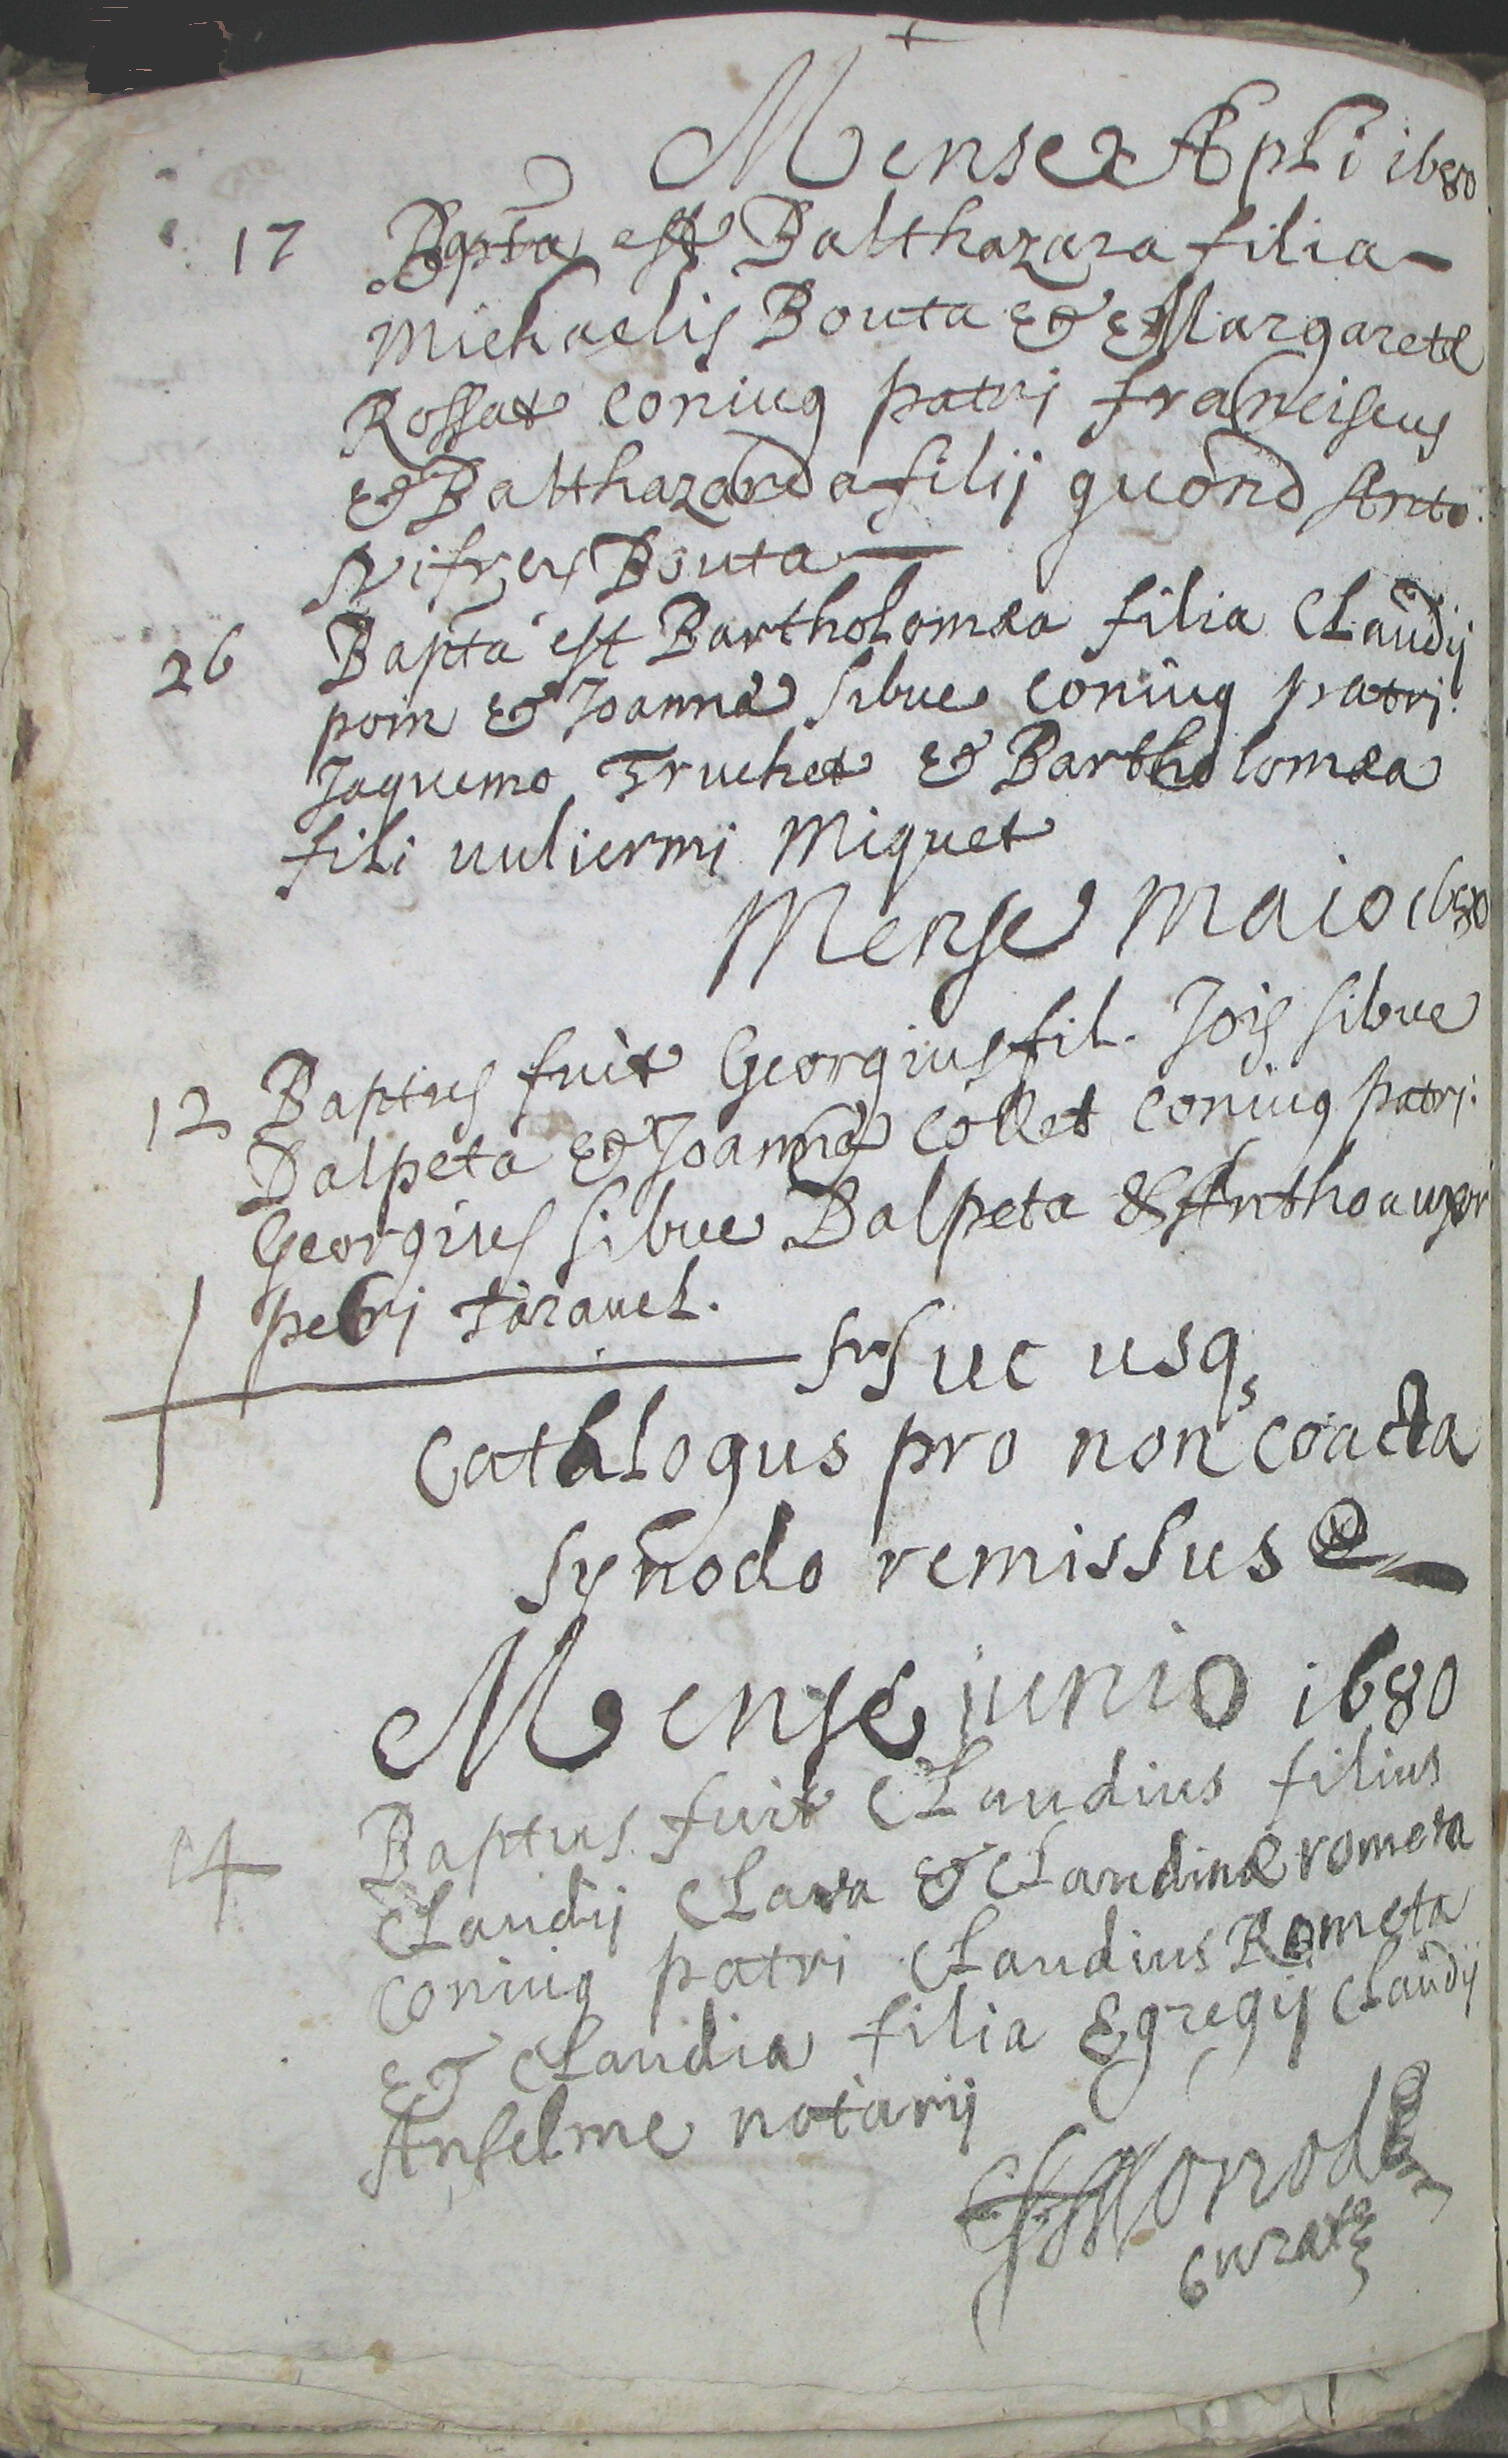 Mense Apli 1680
17 Bapta est Balthazara filia
Michaelis Bouta & Margaretæ
Rossat coniug patri franciscus
& Balthazarda filij quond Anto
Bouta
26 Bapta est Bartholomæa filia Claudij
poin & Joannæ sibue coniug patri.
Jaquemo Truchet & Bartholomæa
fili uuliermi Miquet
Mense Maio 1680
12 Baptus fuit Georgius fil. Jois sibue
Dalpeta & Joannæ Collet coniug patri.
Georgius sibue Dalpeta & Anthoa uxor
petri taravel.
Huc usq,
Catalogus pro non coacta
synodo remissus
Mense junio 1680
14 Baptus fuit Claudius filius
Claudij Clara & Claudinæ rometa
coniug patri Claudius Rometa
& Claudia filia Egregij Claudij
Anselme notarij
Monnod
curat